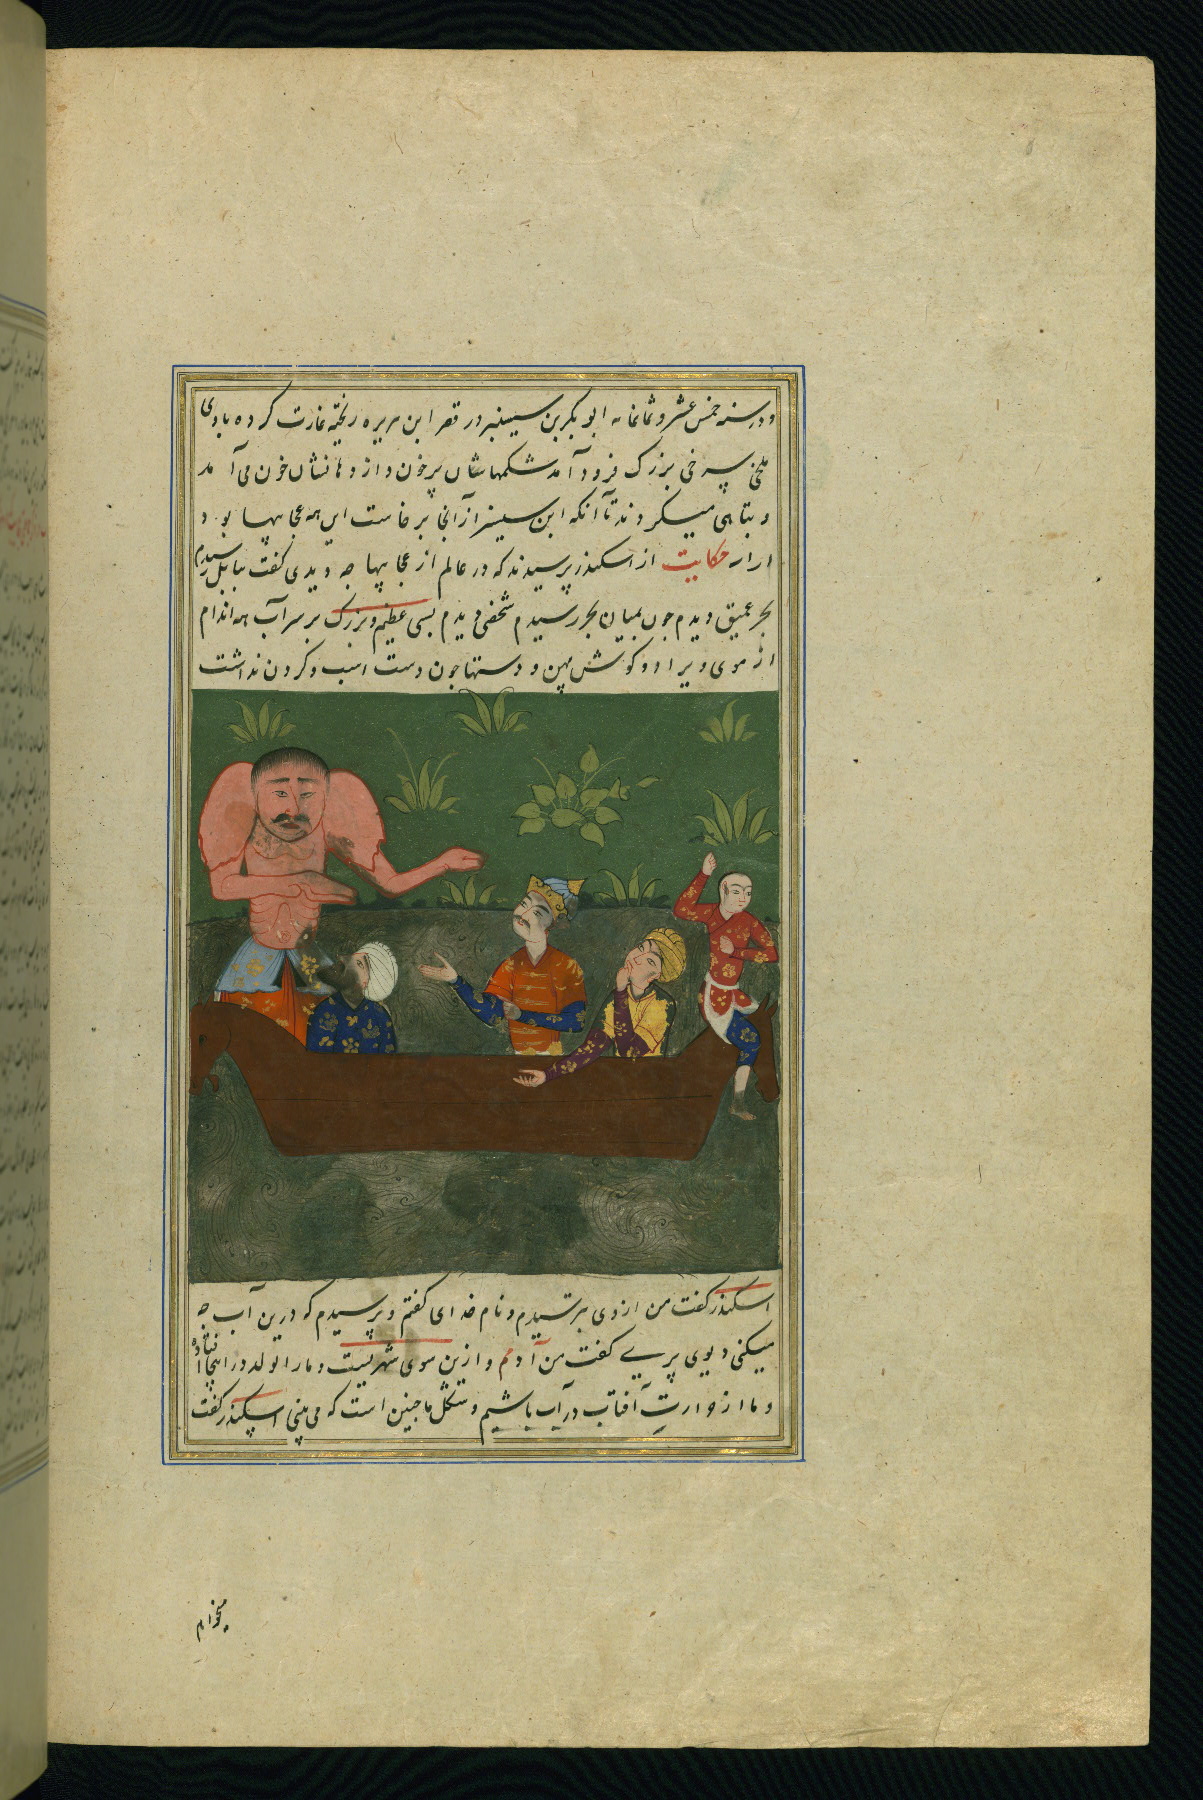 ودر سنه خمس عشر و ثمانمایه ابو بکر بن سیسنبر در قصر ابن هریره ریخته غارت کرده بادی
ملخی سرخی بزرک فرود آمد شکمهاشان پر خون و از دهانشان خون می آمد
و تباهی میکردند تا آنکه ابن سیسنبر از آنجا برخاست این همه عجایبها بود
حکایت از اسکندر پرسیدند که در عالم از عجایبها چه دیدی کفت ببابل رسیدم
بحر عمیق دیدم جون بمیان بحر رسیدم شخصی دیدم بسی عظیم و بزرک بر سر آب همه اندام
از موی ویرا دو کوش پهن و دستها جون دست اسب و کردن نداشت
اسکندر کفت من از وی بترسیدم و نام خدای کفتم و پرسیدم که درین آب چه
میکنی دیوی پریی کفت من آدمم و ازین سوی شهریست و مارا تولد در اینجا افتاده
و ما از حرارت آفتاب در آب باشیم و شکل ما جنین است که می بینی اسکندر کفت
میخواهم